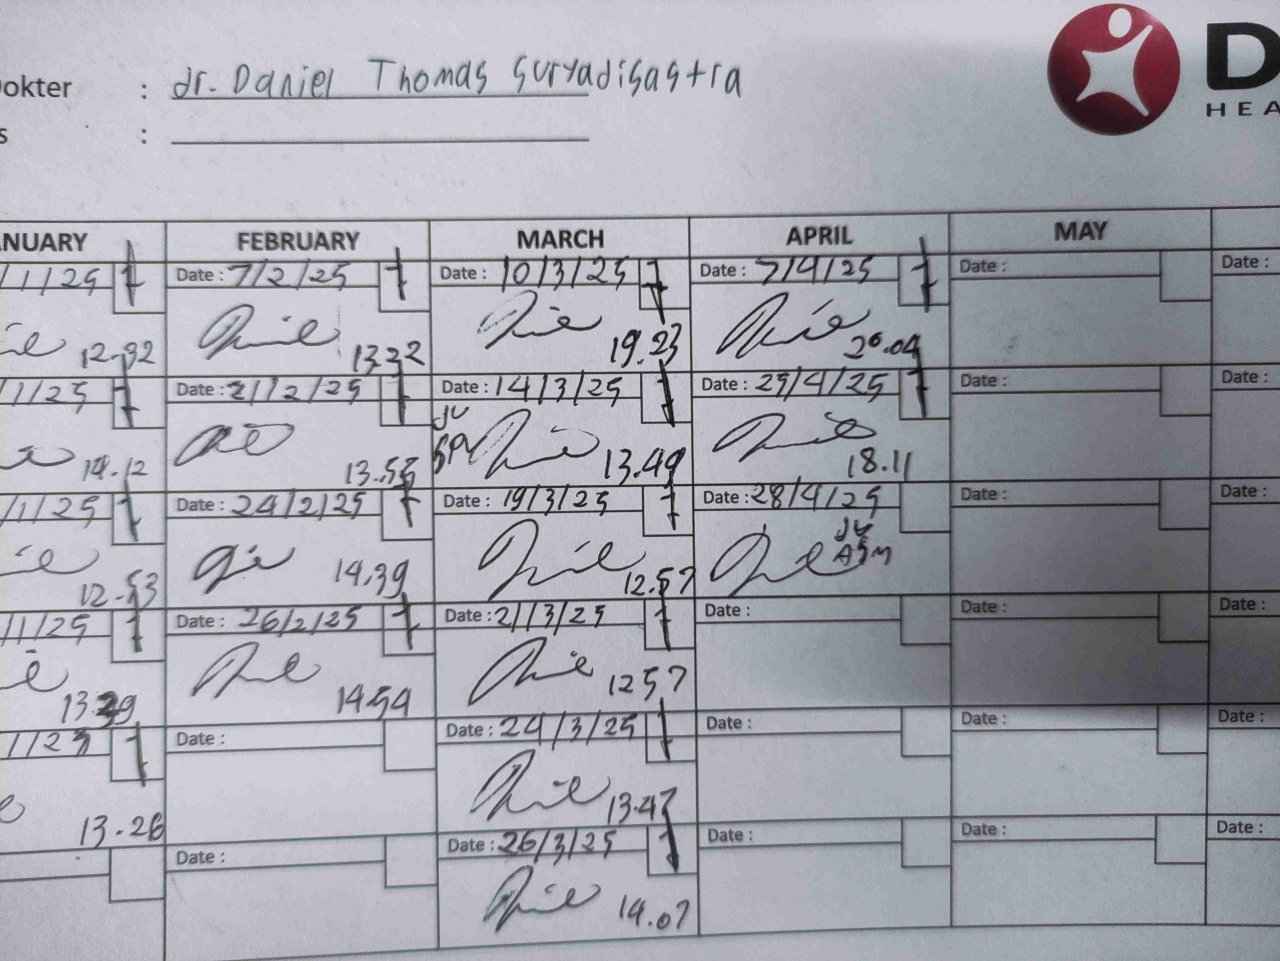 Dokter : dr. Daniel Thomas Suryadisastra
s :
D
HEA
ANUARY FEBRUARY MARCH APRIL MAY
/1/25 Date : 7/2/25 Date : 10/3/25 Date : 7/4/25 Date : Date :
12.32 13.22 19.23 20.04
/1/25 Date : 21/2/25 Date : 14/3/25 Date : 25/4/25 Date : Date :
14.12 13.55 13.49 18.11
/1/25 Date : 24/2/25 Date : 19/3/25 Date : 28/4/25 Date : Date :
12.53 14.39 12.57
/1/25 Date : 26/2/25 Date : 21/3/25 Date : Date : Date :
13.29 14.54 1257
1/25 Date : Date : 24/3/25 Date : Date : Date :
13.26 13.47
Date : Date : 26/3/25 Date : Date : Date :
14.07